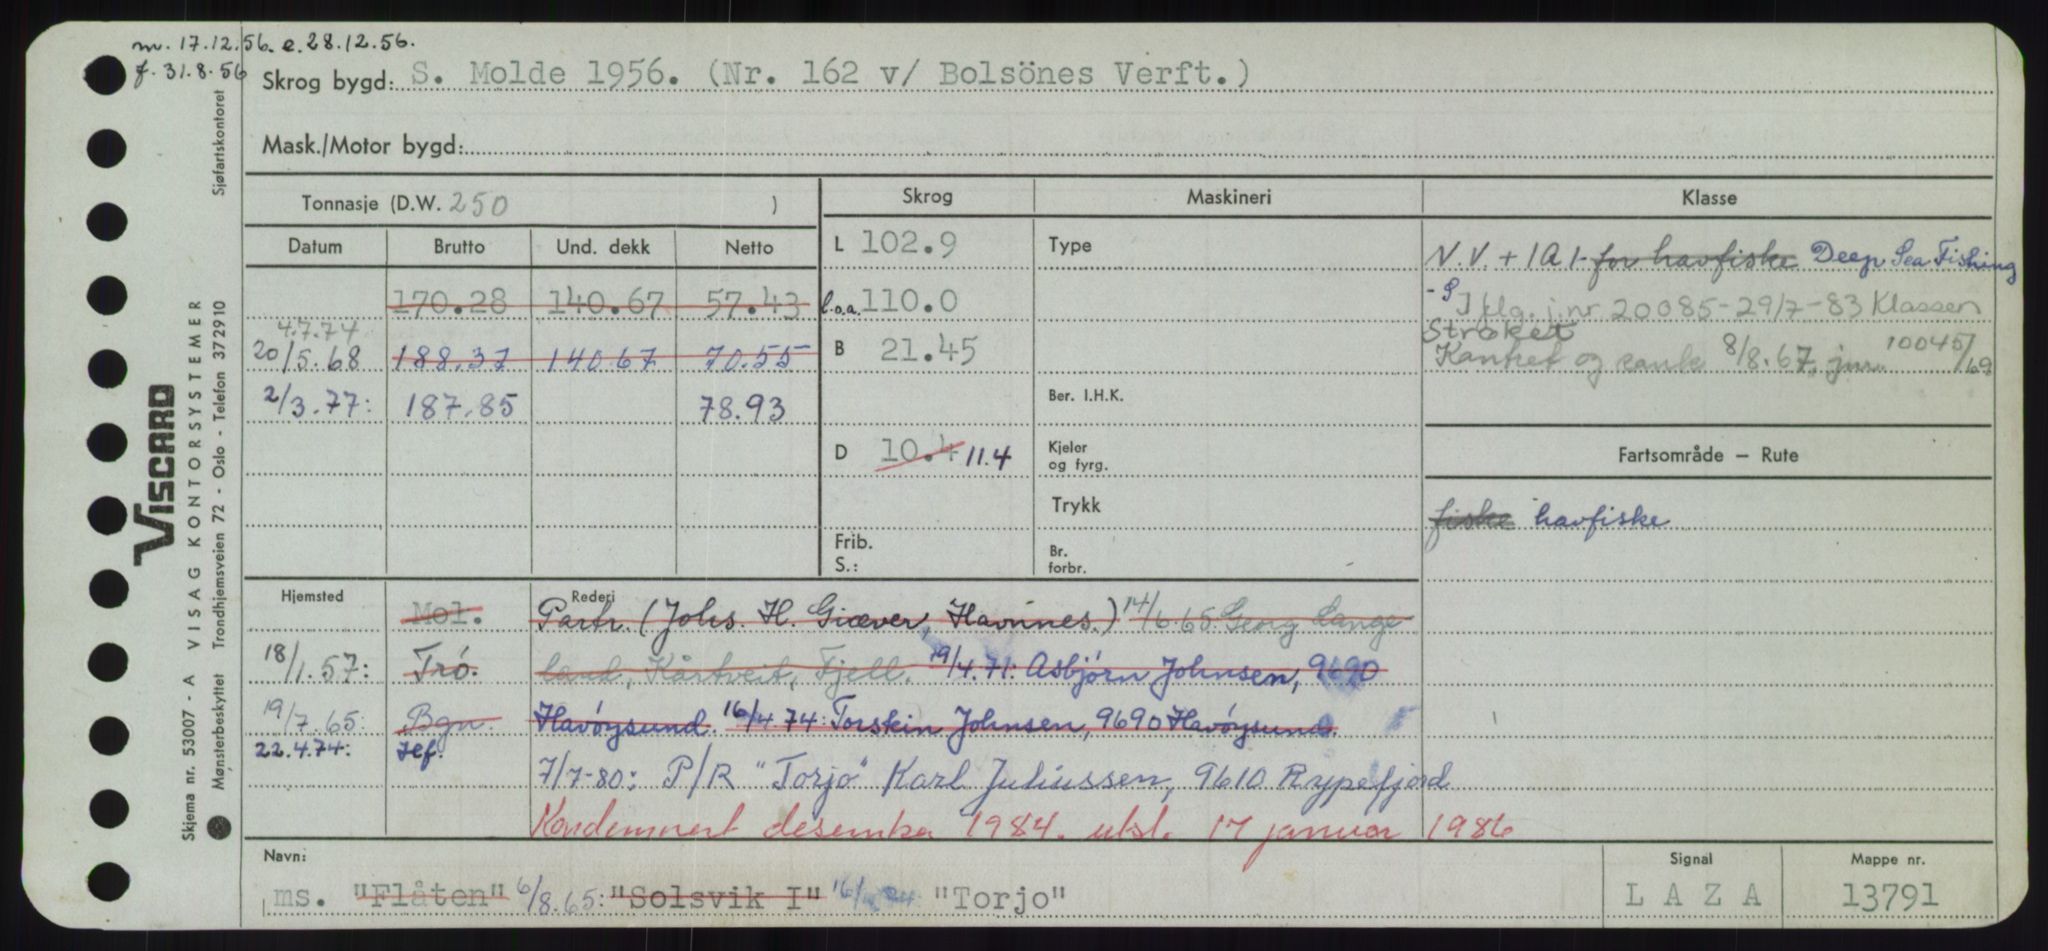 m. 17.12.56. e. 28.12.56.
f. 31.8.56
Skrog bygd: S. Molde 1956. (Nr. 162 v/ Bolsönes Verft.)
Mask./Motor bygd:
Tonnasje (D.W. 250 )
Skrog
Maskineri
Klasse
Datum Brutto Und. dekk Netto
170.28 140.67 57.43
4.7.74
20/5.68 188.37 140.67 70.55
2/3.77: 187.85 78.93
L 102.9
l.o.a. 110.0
B 21.45
D 10.4 11.4
Frib.
S.:
Type
Ber. I.H.K.
Kjeler
og fyrg.
Trykk
Br.
forbr.
N.V. + 1A1- for havfiske Deep Sea Fishing
-S
I flg. j.nr 20085-29/7-83 Klassen
Strøket
8/8.67, jnr. 10045/69
Fartsområde — Rute
fiske havfiske
Hjemsted
Rederi
Mol. Partr. (Johs. H. Giæver, Havnnes.) 14/6.65 Georg Lange
18/1.57: Trö. land, Kårtveit, Fjell. 19/4.71: Asbjörn Johnsen, 9690
19/7.65: Bgn. Havöysund. 16/4 74: Torstein Johnsen, 9690 Havöysund.
22.4.74: Hef.
7/7-80: P/R "Torjo" Karl Juliussen, 9610 Rypefjord
Kondemnert desember 1984. utsl. 17 januar 1986
Navn:
ms. "Flåten" 6/8.65: "Solsvik I" 16/4 74: "Torjo"
Signal
L A Z A
Mappe nr.
13791
VISCARD
Skjema nr. 53007 - A VISAG KONTORSYSTEMER
Mønsterbeskyttet Trondhjemsveien 72 - Oslo - Telefon 372910 Sjøfartskontoret